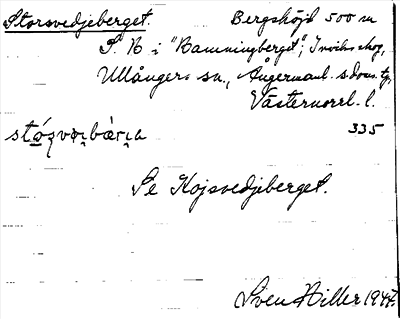 Storsvedjeberget. Bergshöjd 500 m
S. N. i "Ramningberget"; Invikshög,
Ullångers sn., Ångermanl. s. doms. tg.
Västernorrl. l.
335
Se Kojsvedjeberget.
Sven Hiller 1944.